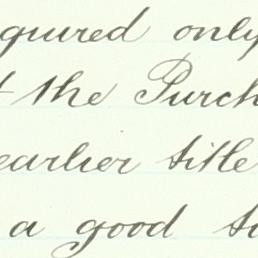 quired only
t the Purch
earlier title
a good t